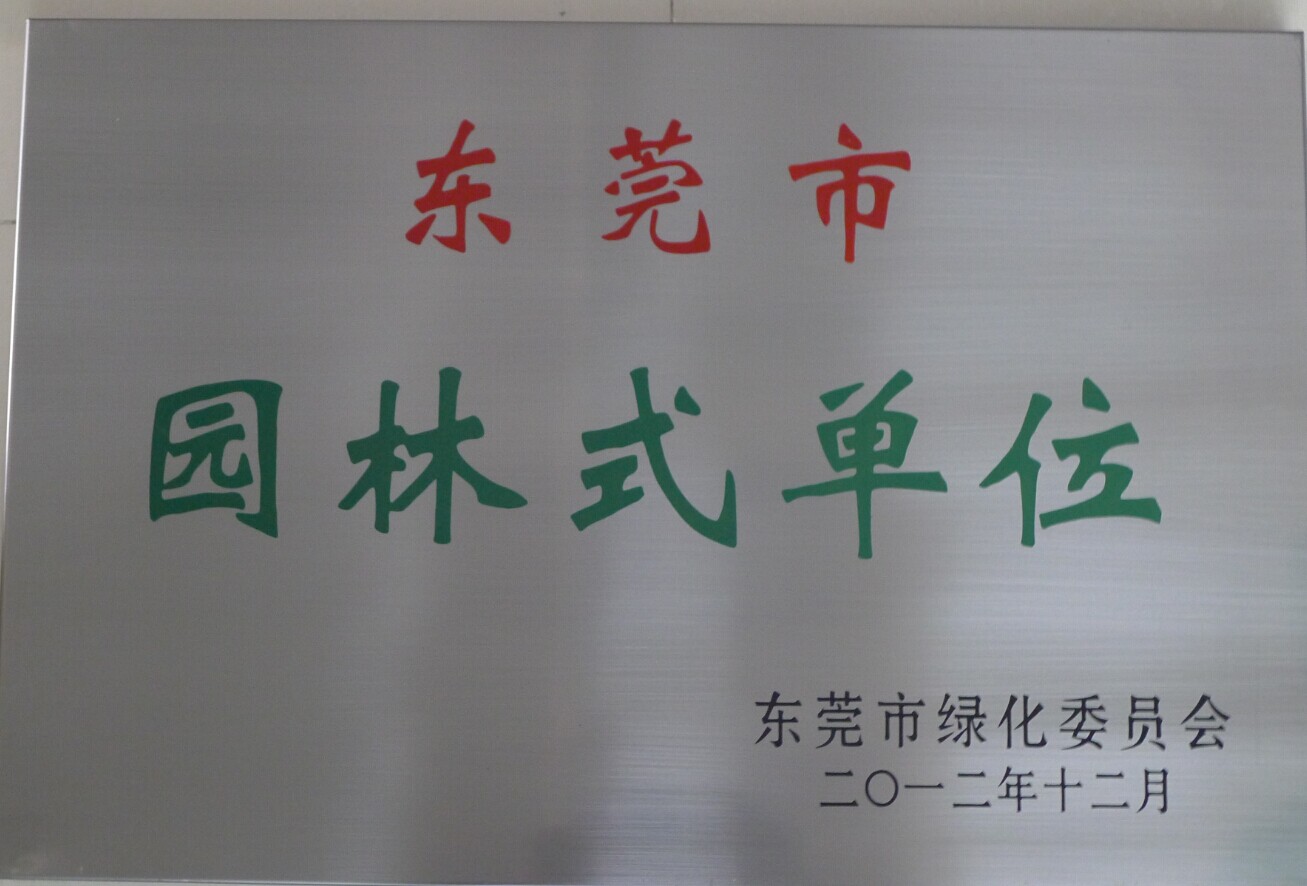 东莞市
园林式单位
东莞市绿化委员会
二〇一二年十二月